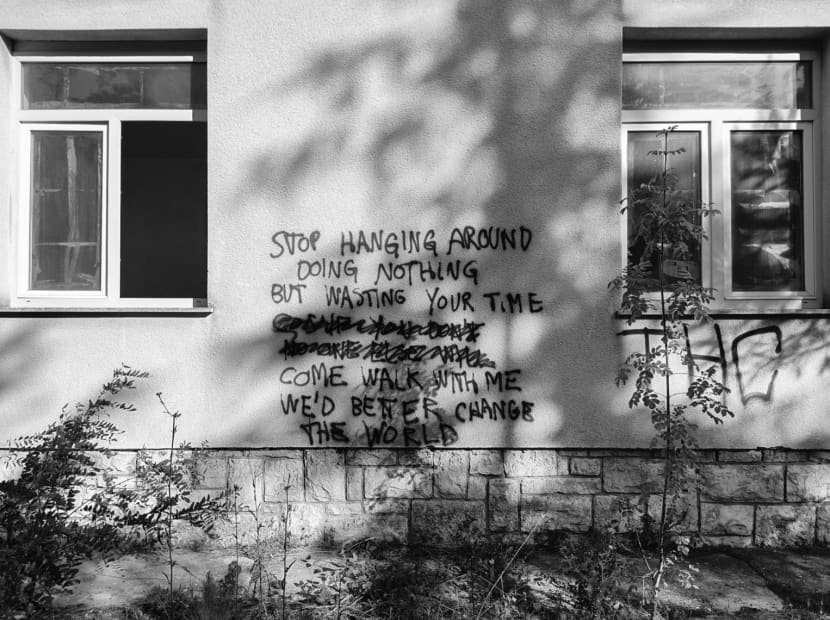 STOP HANGING AROUND
DOING NOTHING
BUT WASTING YOUR TIME
COME WALK WITH ME
WE'D BETTER CHANGE
THE WORLD
THC